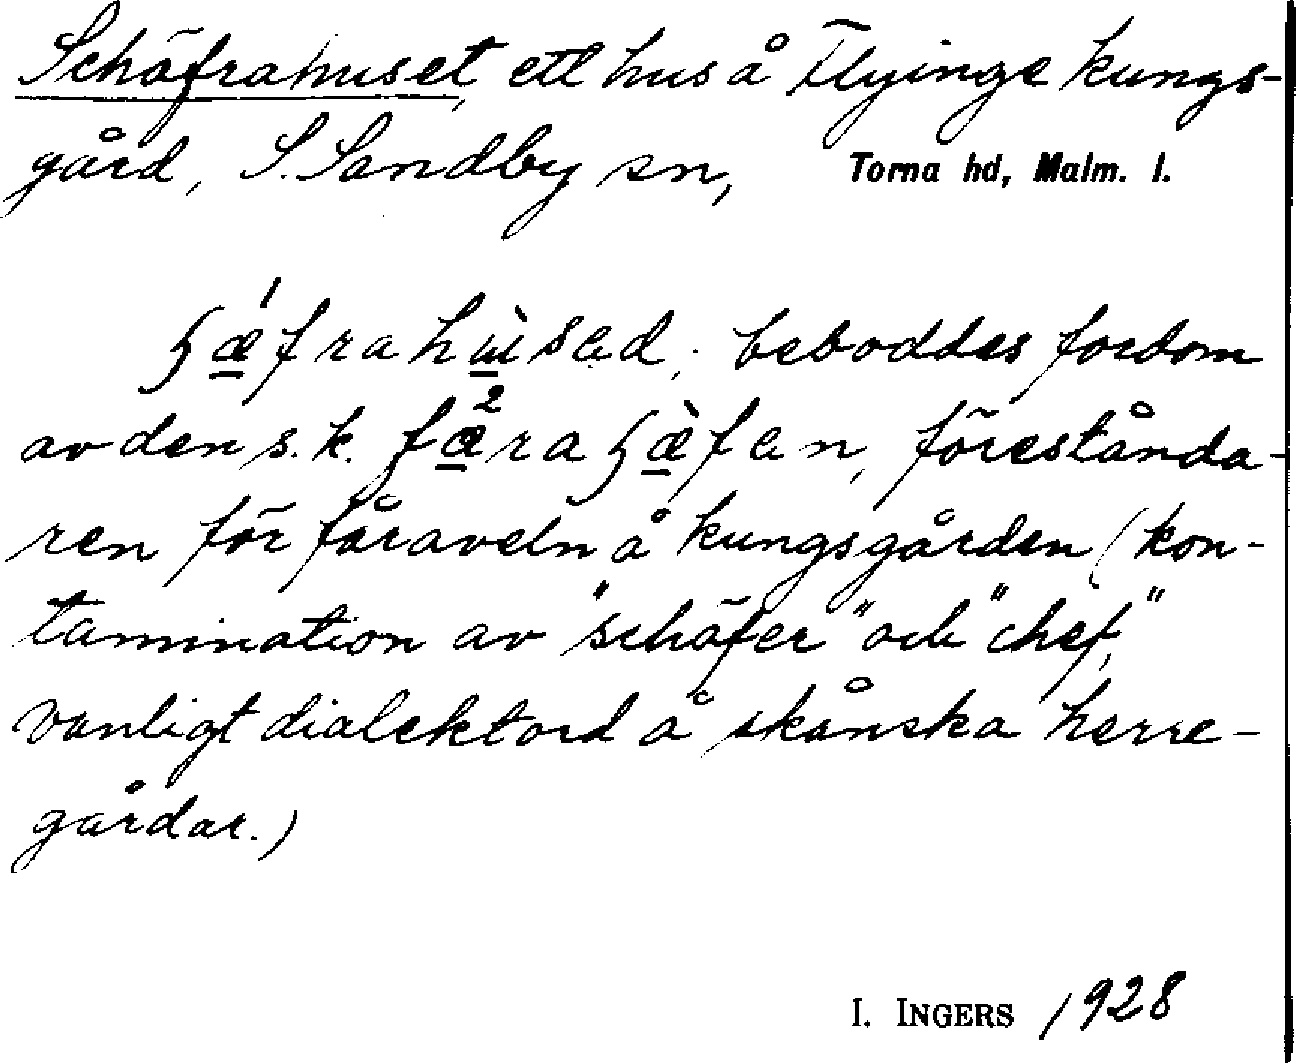 Schäfrahuset, ett hus å Flyinge kungs-
gård, S. Sandby sn, Torna hd, Malm. l.
ʃǽfrahùsad; beboddes fordom
av den s.k. fæ²ra ʃæ̀fan, förestånda-
ren för fåraveln å kungsgården (kon-
tamination av "schäfer" och "chef",
vanligt dialektord å skånska herre-
gårdar.)
I. INGERS 1928